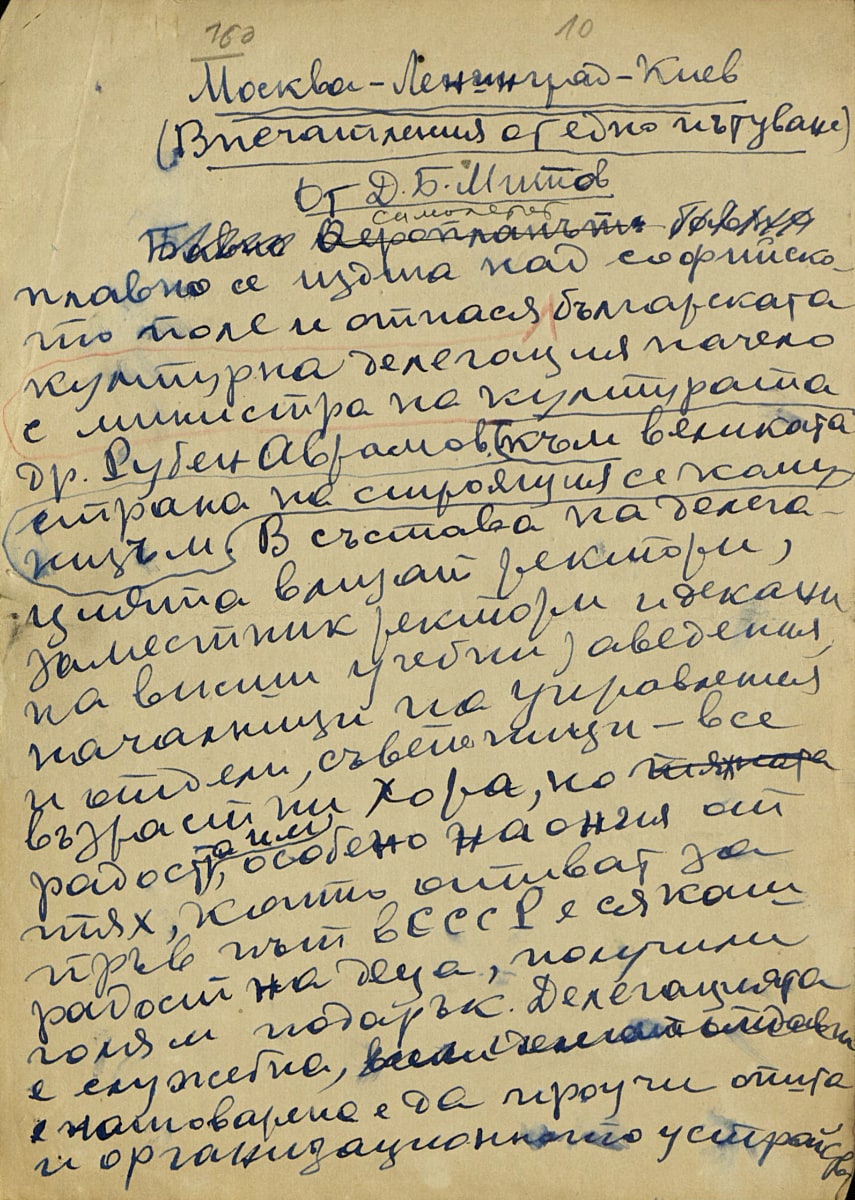 160 10
Москва – Ленинград – Киев
(Впечатления от едно пътуване)
От Д. Б. Митов
самолетът
Бавно Аеропланът бавно
плавно се издига над софийско-
то поле и отнася българската
културна делегация начело
с министра на културата
др. Рубен Аврамов към великата
страна на строящия се кому
низъм. В състава на делега-
цията влизат ректори,
заместник ректори и декани
на висши учебни заведения,
началници на управления
и отдели, съветници – все
възрастни хора, но тяхната
радостта им, особено на ония от
тях, които отиват за
пръв път в СССР е сякаш
радост на деца, получили
голям подарък. Делегацията
е служебна,
е натоварена е да проучи опита
и организационното устройств